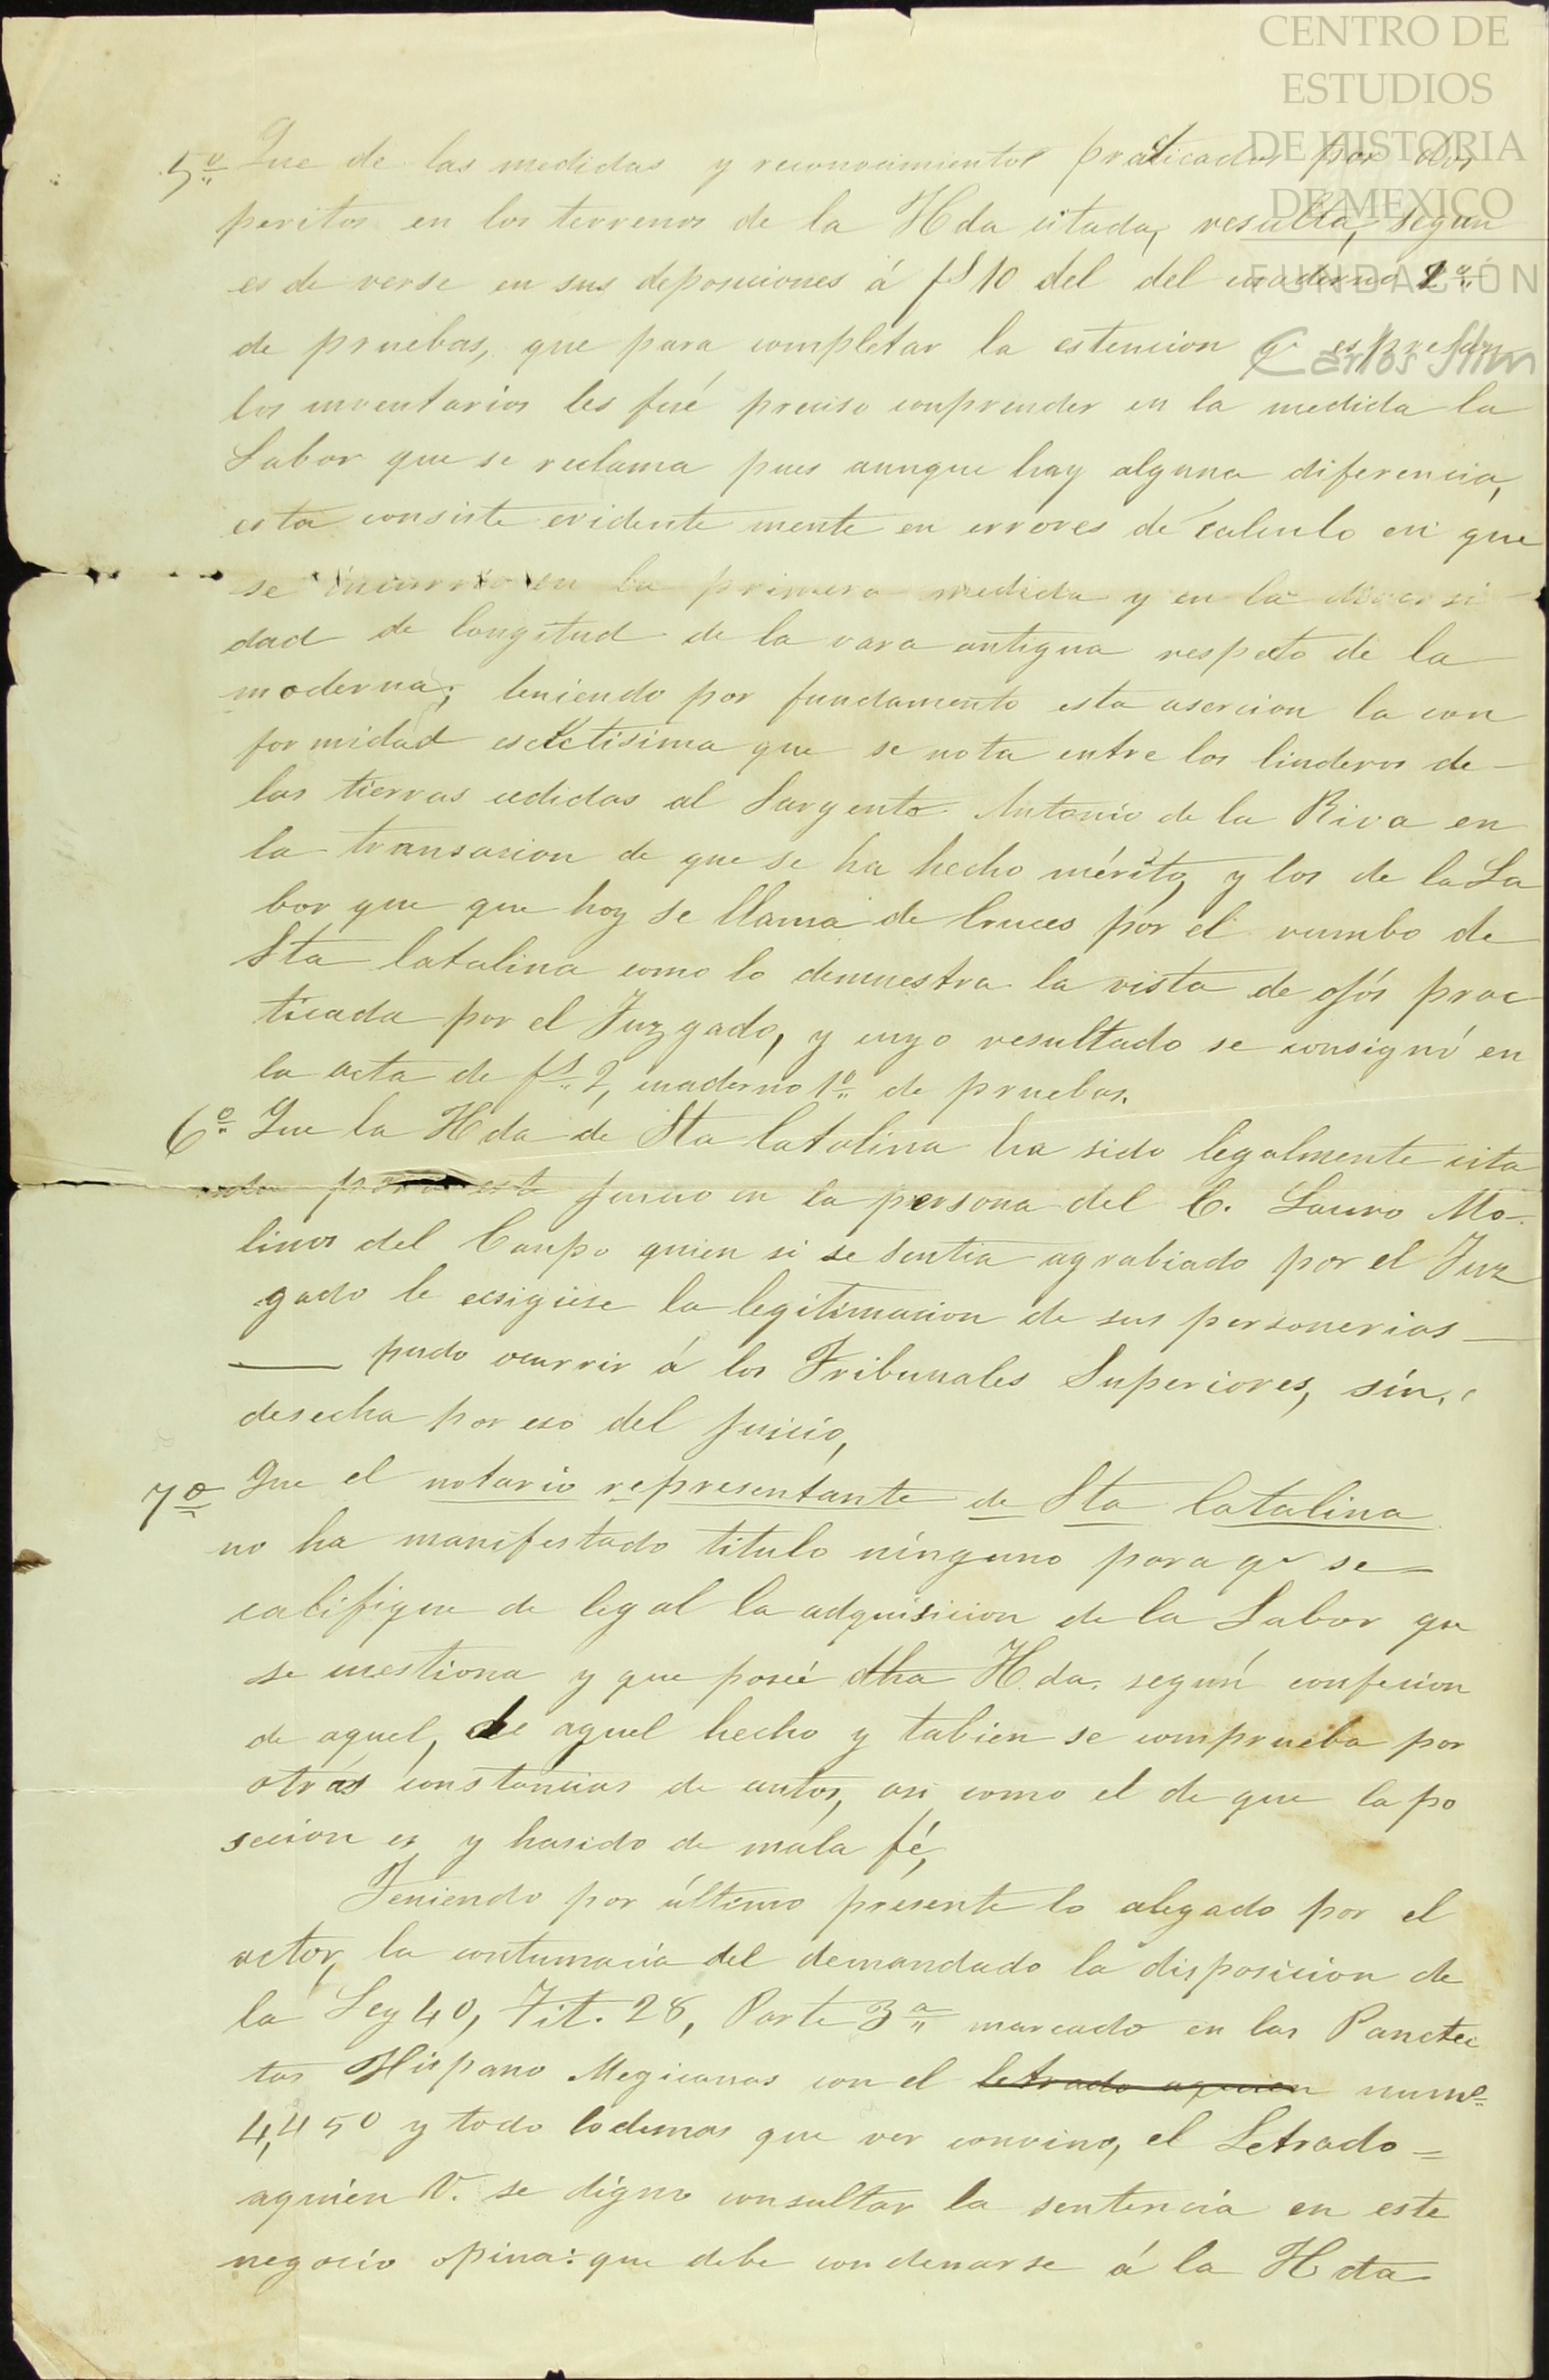 CENTRO DE
ESTUDIOS
DE HISTORIA
DE MEXICO
FUNDACIÓN
Carlos Slim
5º Que de las medidas y reconocimientos practicados por dos
peritos en los terrenos de la Hda citada, resulta, segun
es de verse en sus deposiciones á fs 10 del del cuaderno 2º
de pruebas, que para completar la estencion q. espresan
los inventarios les fué preciso conprender en la medida la
Labor que se reclama pues aunque hay alguna diferencia,
esta consiste evidente mente en errores de calculo en que
se incurrió en la primera medida y en la diversi
dad de longitud de la vara antigua respecto de la
moderna; teniendo por fundamento esta asercion la con
formidad esactisima que se nota entre los linderos de
las tierras cedidas al Sargento Antonio de la Riva en
la transacion de que se ha hecho mérito, y los de la La
bor que que hoy se llama de Cruces por el rumbo de
Sta Catalina como lo demuestra la vista de ojós prac
ticada por el Juzgado, y cuyo resultado se consignó en
la acta de fs 2, cuaderno 1º de pruebas.
6º Que la Hda de Sta Catalina ha sido legalmente cita
da para este juicio en la persona del C. Lauro Mo-
linos del Canpo quien si se sentia agrabiado por el Juz
gado le ecsigiese la legitimacion de sus personerias
pudo ocurrir á los Tribunales Superiores, sin
desecha por eso del juicio,
7º Que el notario representante de Sta Catalina
no ha manifestado titulo ninguno para q. se
califique de legal la adquisicion de la Labor que
se cuestiona y que poseé dha Hda. según confecion
de aquel, de aquel hecho y tabien se comprueba por
otras constancias de autos, asi como el de que la po
seción es y hasido de mala fé,
Teniendo por último presente lo alegado por el
actor, la contumacia del demandado la disposicion de
la Ley 40, Tit. 28, Parte 3ª marcado en las Panctec
tas Hispano Megicanas con el letrado aquien numo
4,450 y todo lodemas que ver convino, el Letrado
aquien V. se digno consultar la sentencia en este
negocio opina: que debe condenarse á la Hda